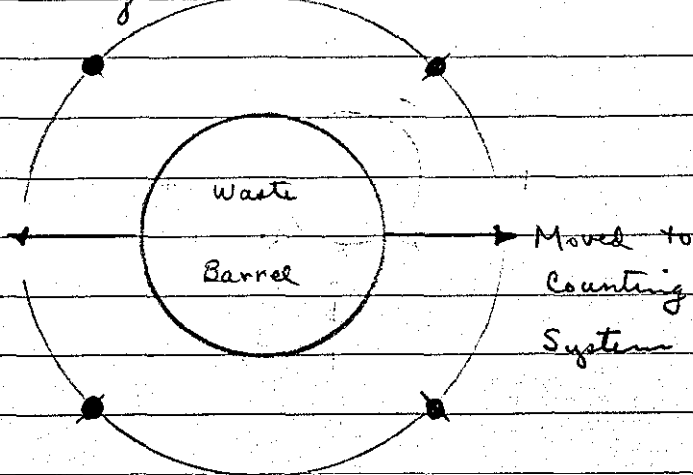 Waste
Barrel
Moved to
Counting
System